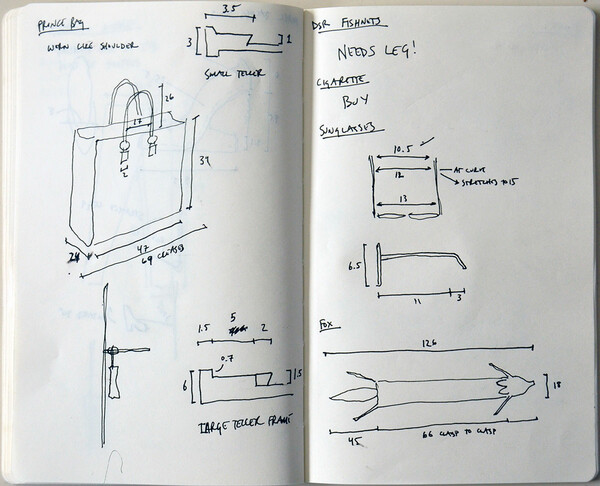 PRINCE BAG
WORN LIKE SHOULDER
3.5
3
1
SMALL TELLER
26
17
2
39
24
47
69 CREASES
1.5 5 2
0.7
6
1.5
LARGE TELLER FRAME
FISHNETS
NEEDS LEG!
CIGARETTE
BUY
SUNGLASSES
10.5
12
AT CURVE
STRETCHES TO 15
13
6.5
11 3
FOX
126
18
45
66 CLASP TO CLASP